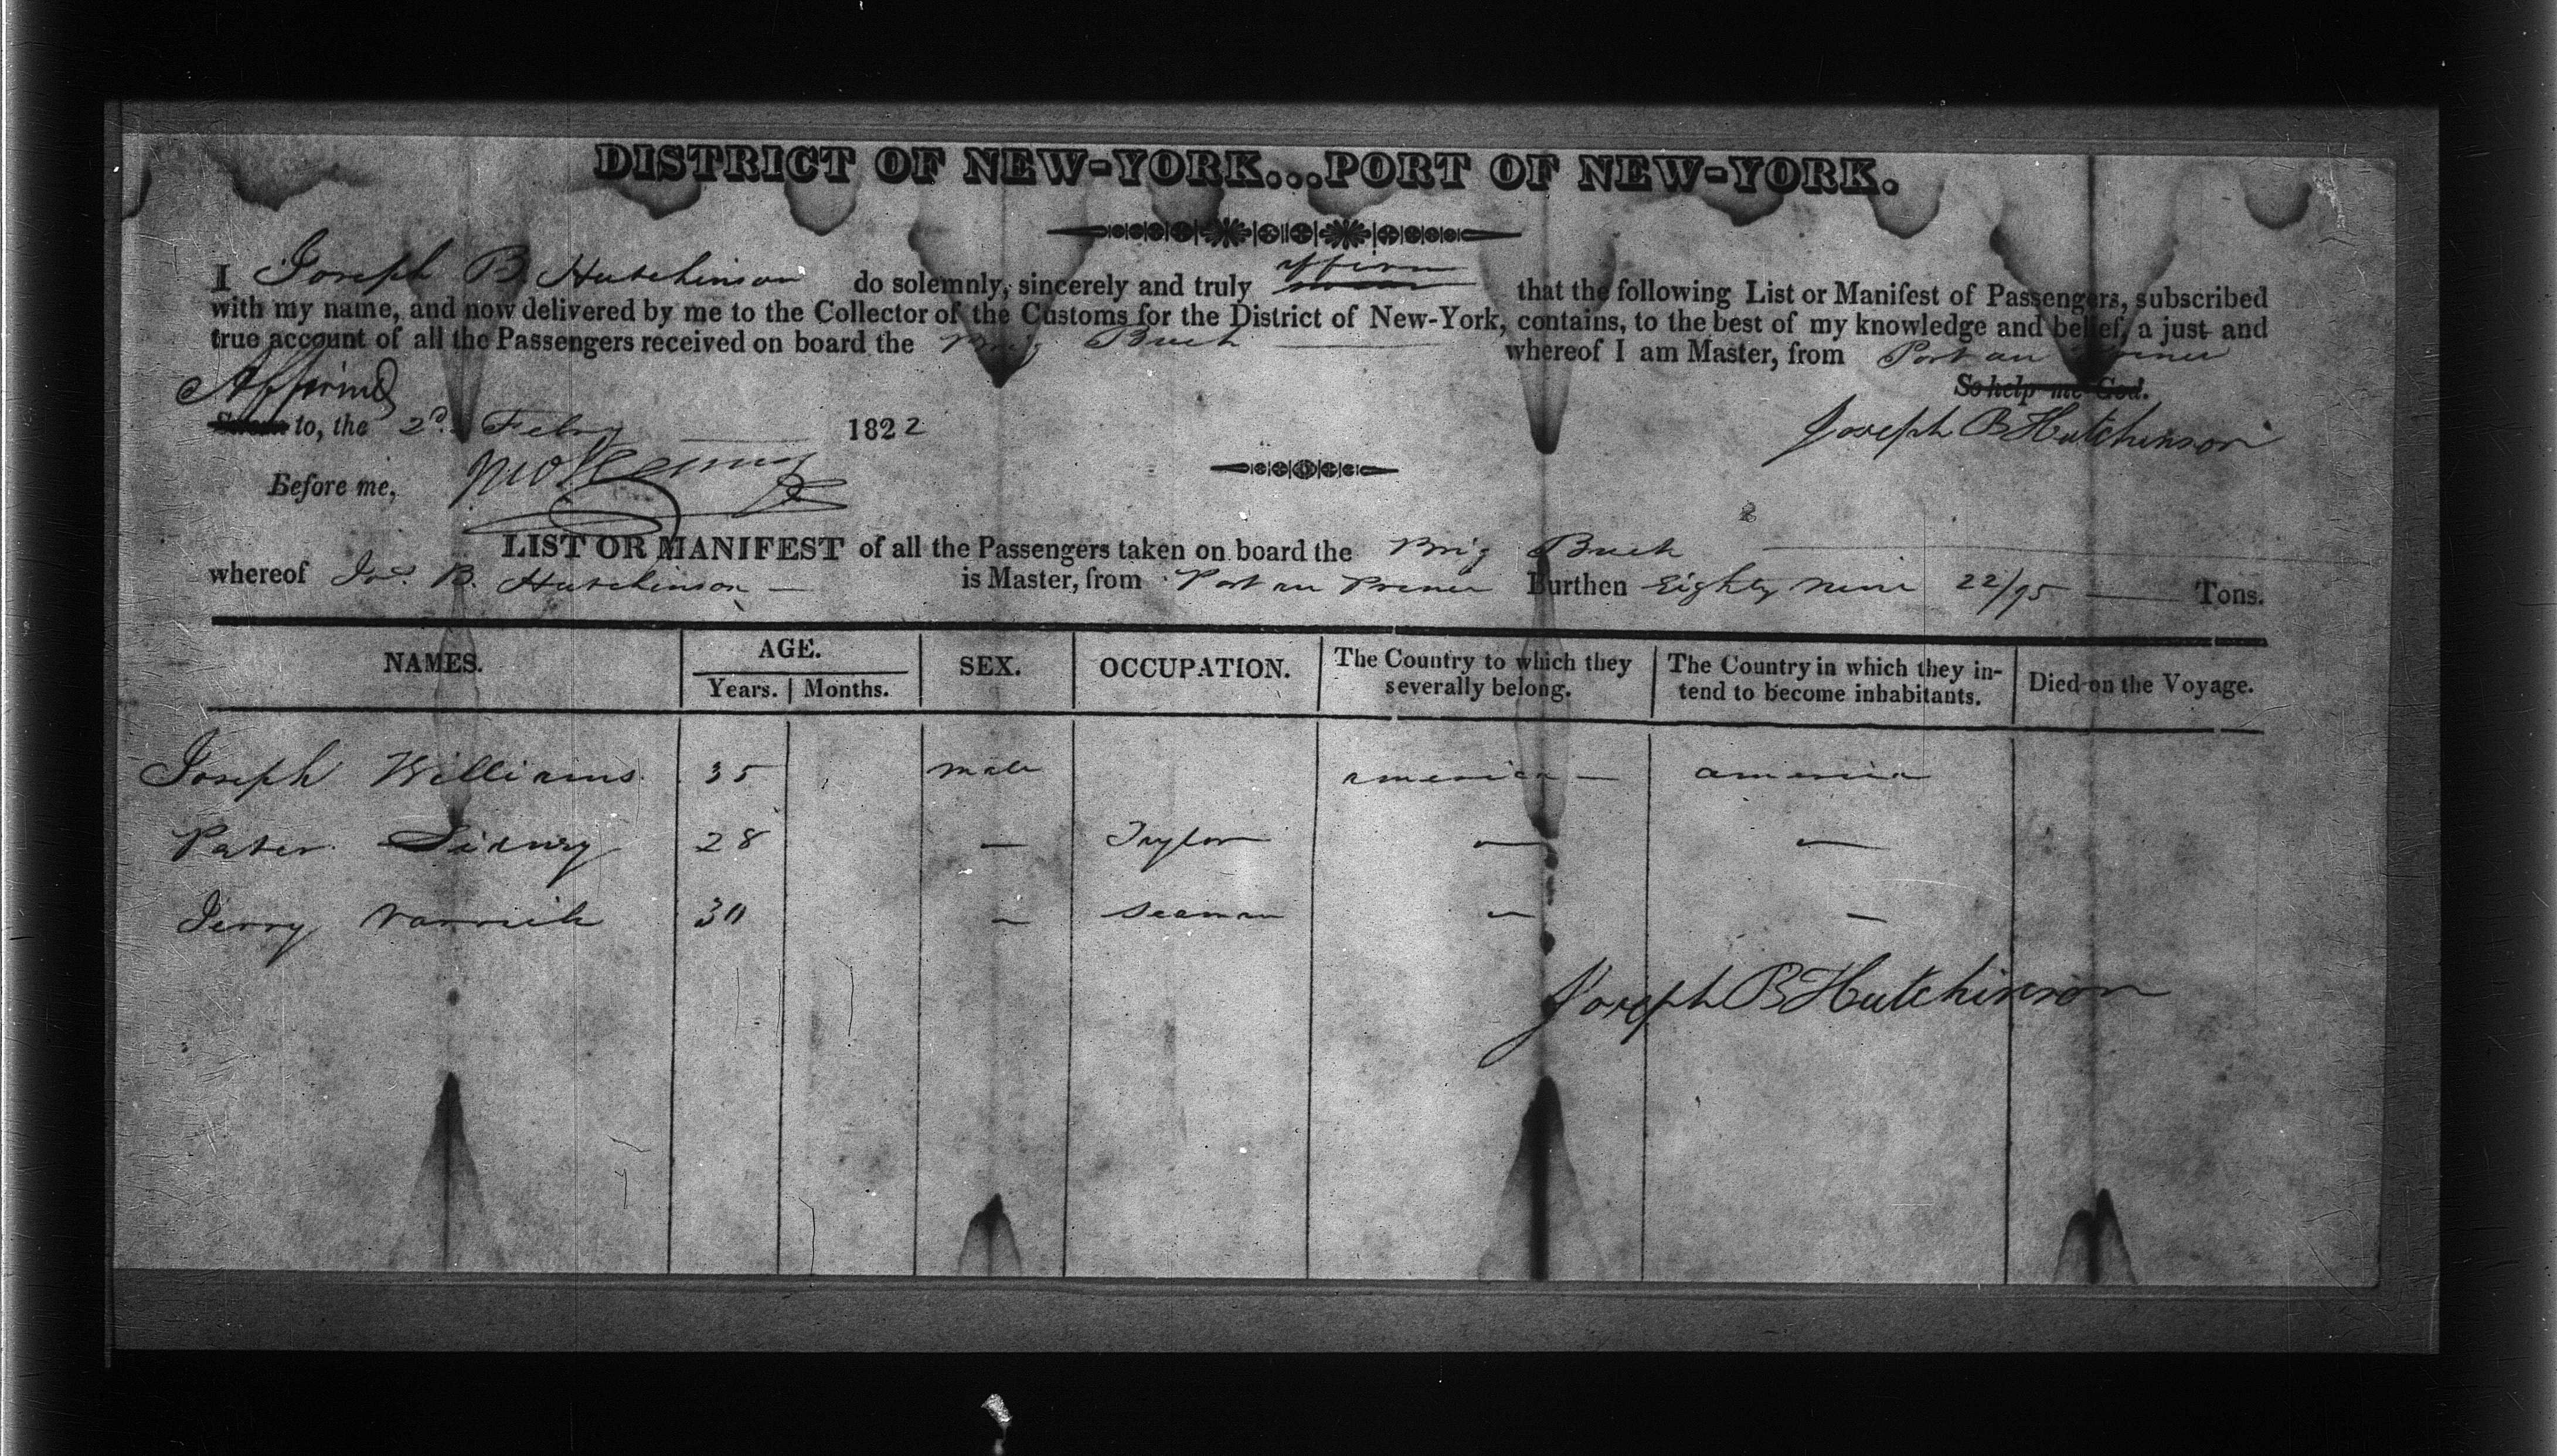 DISTRICT OF NEW-YORK...PORT OF NEW-YORK.
I Joseph B. Hutchinson do solemnly, sincerely and truly affirm that the following List or Manifest of Passengers, subscribed
with my name, and now delivered by me to the Collector of the Customs for the District of New-York, contains, to the best of my knowledge and belief, a just and
true account of all the Passengers received on board the Brig Buck whereof I am Master, from Port au Prince
So help me God.
Affirmd
Sworn to, the 2d. Feby 1822
Joseph B Hutchinson
Before me,
LIST OR MANIFEST of all the Passengers taken on board the Brig Buck
whereof Jos. B. Hutchinson is Master, from Port au Prince Burthen Eighty nine 22/95 Tons.
NAMES. AGE. Years. Months. SEX. OCCUPATION. The Country to which they severally belong. The Country in which they intend to become inhabitants. Died on the Voyage.
Joseph Williams 35 male america — america
Peter Sidney 28 — Taylor — —
Jerry 30 — Seaman — —
Joseph B Hutchinson